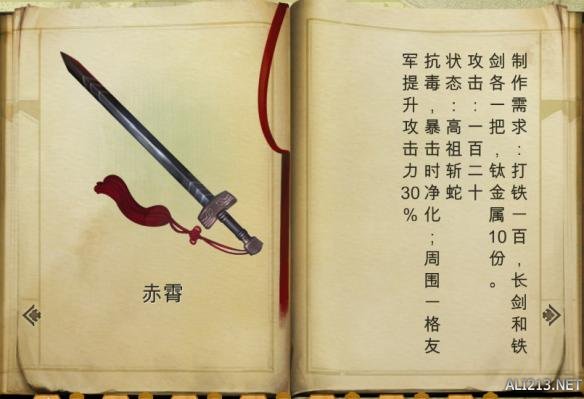 赤霄
制作需求：打铁一百，长剑和铁
剑各一把，钛金属10份。
攻击：一百二十
状态：高祖斩蛇
抗毒，暴击时净化；周围一格友
军提升攻击力30%
ALI213.NET